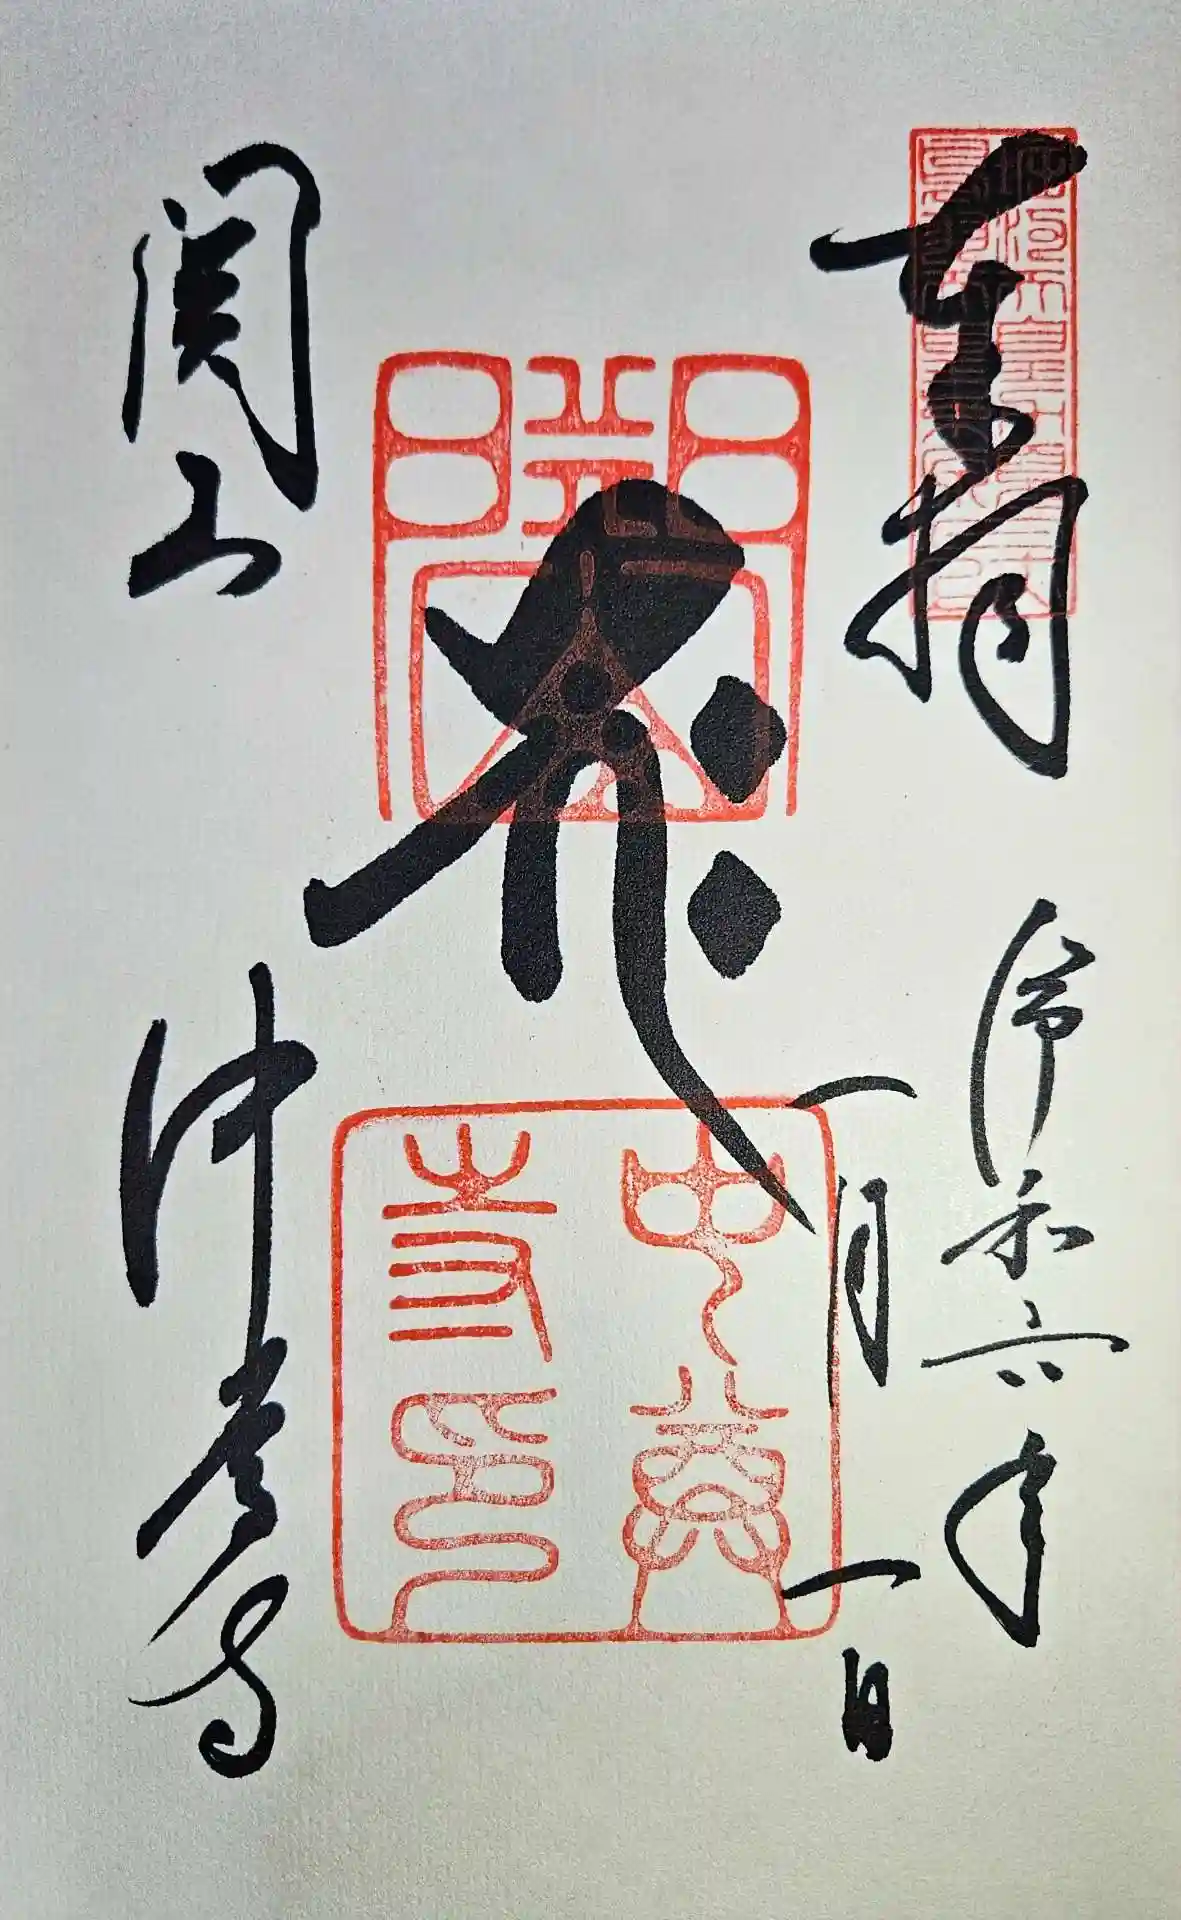 奉拝
令和六年
一月一日
ह्रीः
關山
中尊
寺印
関山
中尊寺